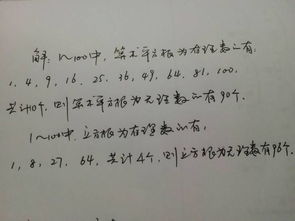 解：1~100中，算术平方根为有理数的有：
1，4，9，16，25，36，49，64，81，100，
共计10个，则算术平方根为无理数的有90个．
1~100中，立方根为有理数的有，
1，8，27，64，共计4个，则立方根为无理数有96个．